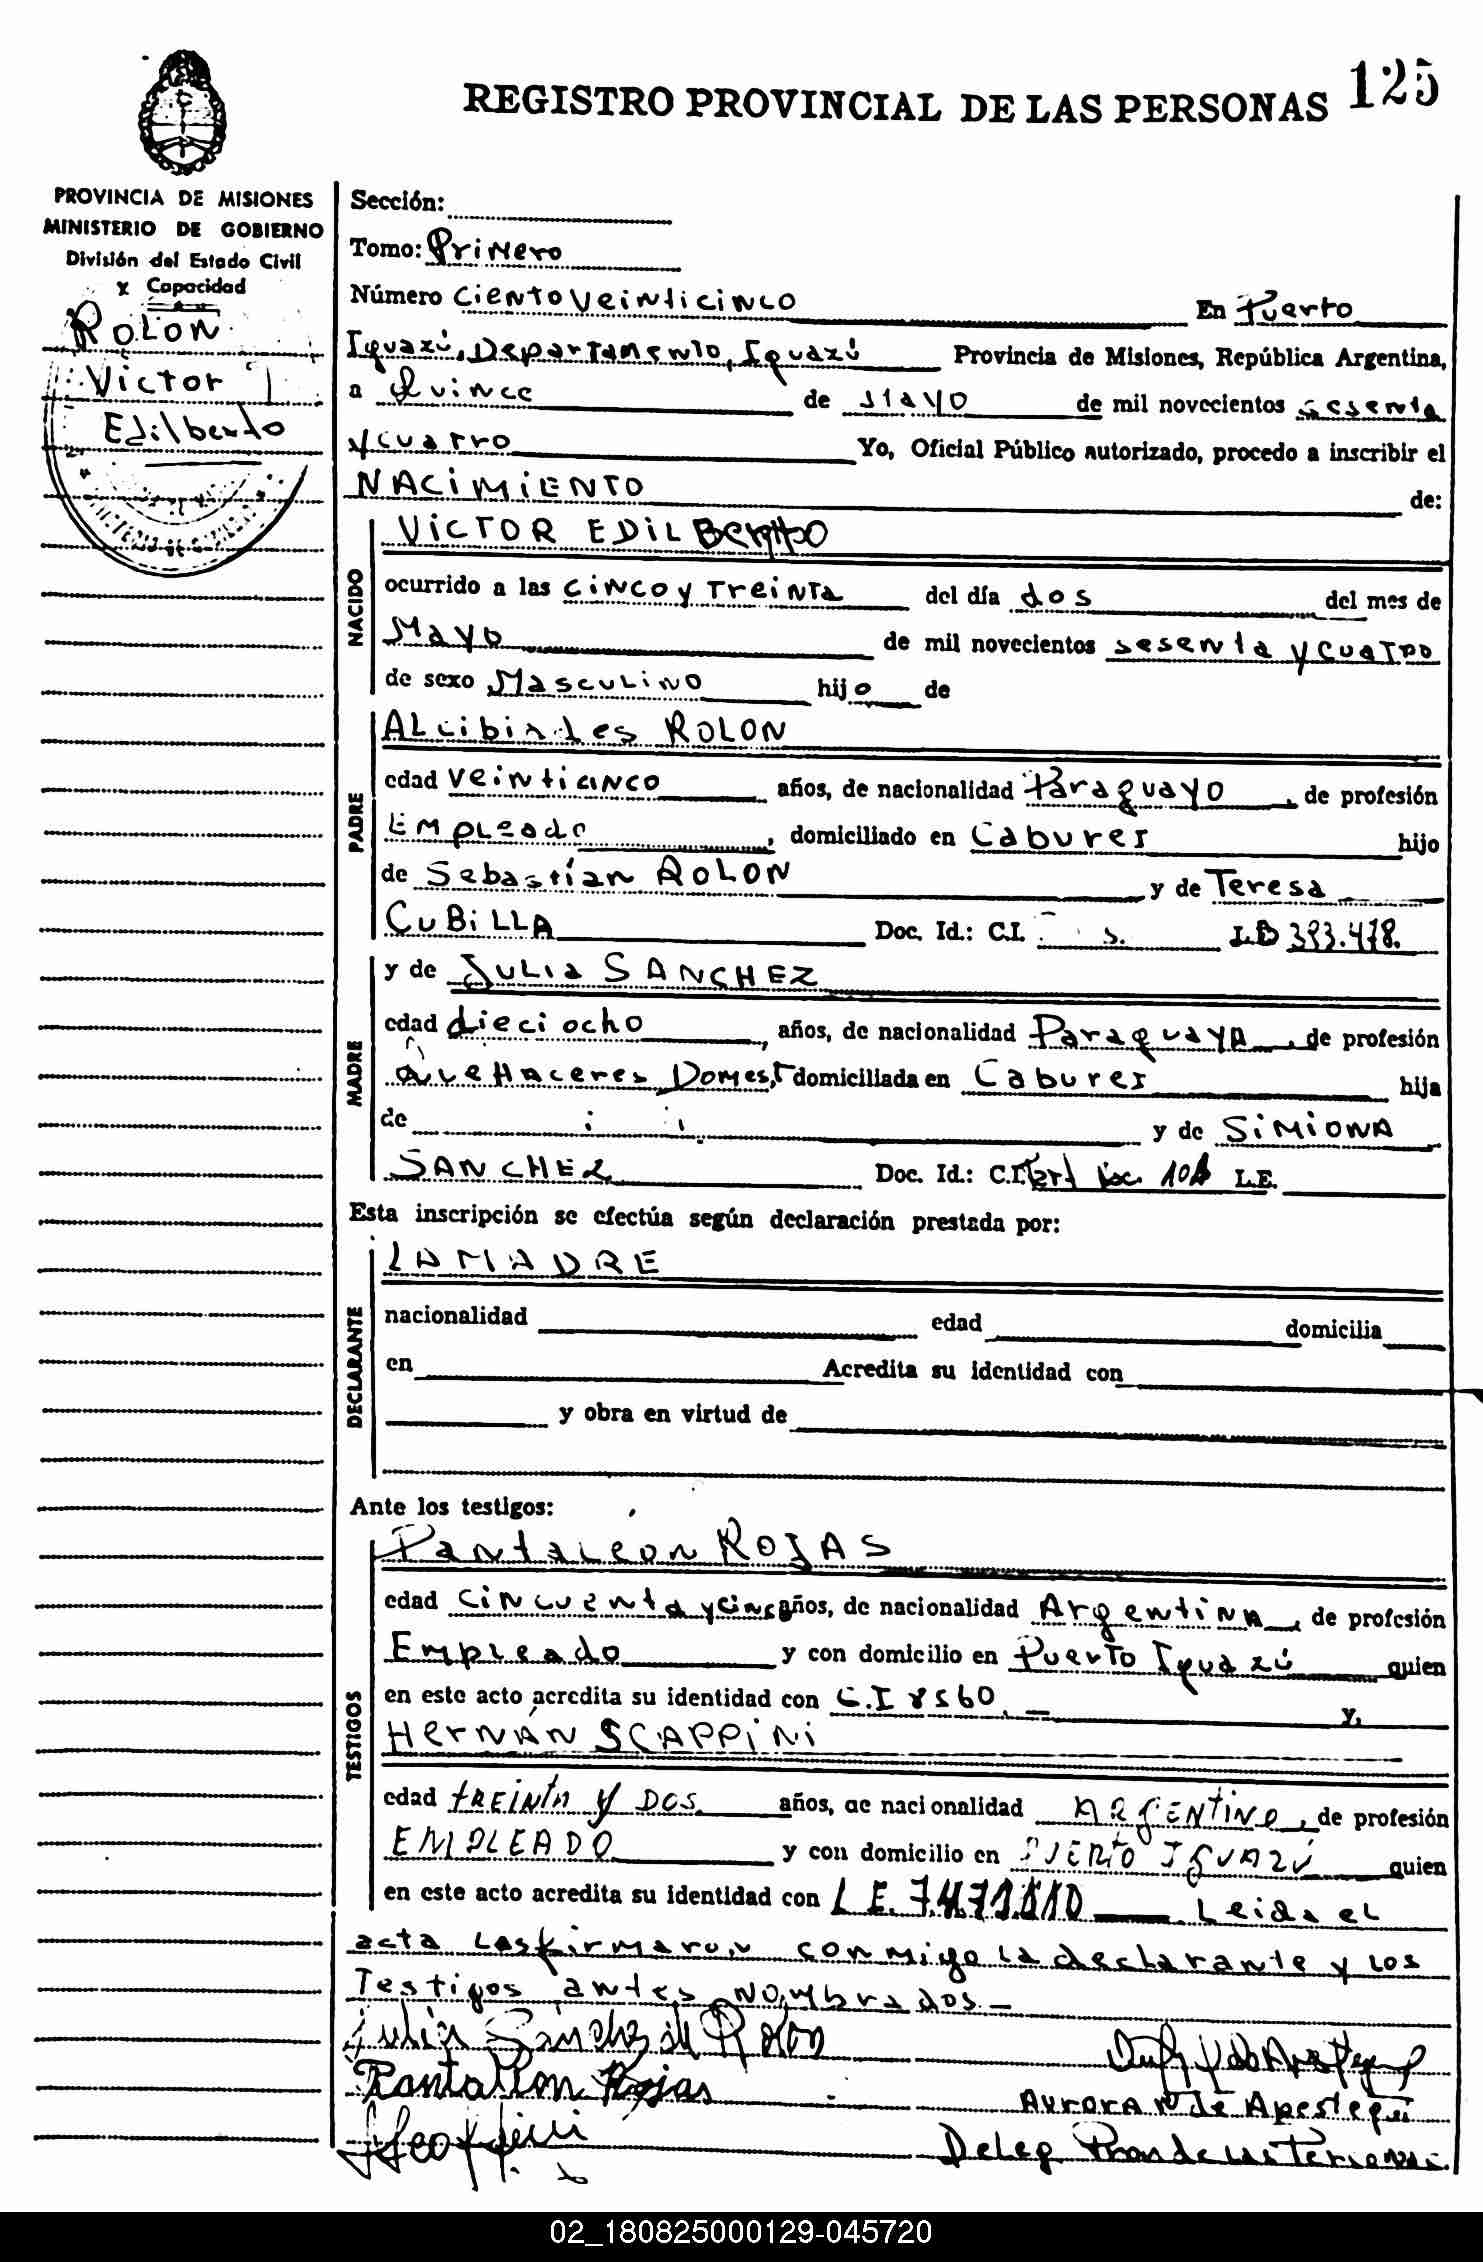 REGISTRO PROVINCIAL DE LAS PERSONAS 125
PROVINCIA DE MISIONES
MINISTERIO DE GOBIERNO
División del Estado Civil
y Capacidad
ROLON
Victor
Edilberto
Sección:
Tomo: Primero
Número Ciento Veinticinco En Puerto
Iguazú, Departamento, Iguazú Provincia de Misiones, República Argentina,
a Quince de Mayo de mil novecientos sesenta
y cuatro Yo, Oficial Público autorizado, procedo a inscribir el
NACIMIENTO de:
NACIDO
VICTOR EDILBERTO
ocurrido a las cinco y Treinta del día dos del mes de
Mayo de mil novecientos sesenta y cuatro
de sexo Masculino hijo de
PADRE
ALcibiades ROLON
edad veinticinco años, de nacionalidad Paraguayo, de profesión
Empleado, domiciliado en Caburei hijo
de Sebastían ROLON y de Teresa
CUBILLA Doc. Id.: C.I. 393.478.
MADRE
y de JULIA SANCHEZ
edad dieciocho, años, de nacionalidad Paraguaya, de profesión
Quehaceres Domest domiciliada en Caburei hija
de y de SIMIONA
SANCHEZ Doc. Id.: C.I. L.E.
Esta inscripción se efectúa según declaración prestada por:
DECLARANTE
LA MADRE
nacionalidad edad domicilia
en Acredita su identidad con
y obra en virtud de
Ante los testigos:
TESTIGOS
Pantaleon ROJAS
edad cincuenta y cinco años, de nacionalidad Argentina, de profesión
Empleado y con domicilio en Puerto Iguazú quien
en este acto acredita su identidad con C.I 8560. y,
HERNÁN SCAPPINI
edad TREINTA Y DOS. años, de nacionalidad ARGENTINO, de profesión
EMPLEADO y con domicilio en PUERTO IGUAZÚ quien
en este acto acredita su identidad con L.E. Leida el
acta Las firmaron conmigo la declarante y los
Testigos antes Nombrados.-
Julia Sánchez de Rolon
Pantalion Rojas
Aurora de Aperstegui
Deleg. de las Personas.
02_180825000129-045720